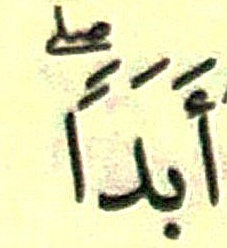 أَبَدَاًۖ